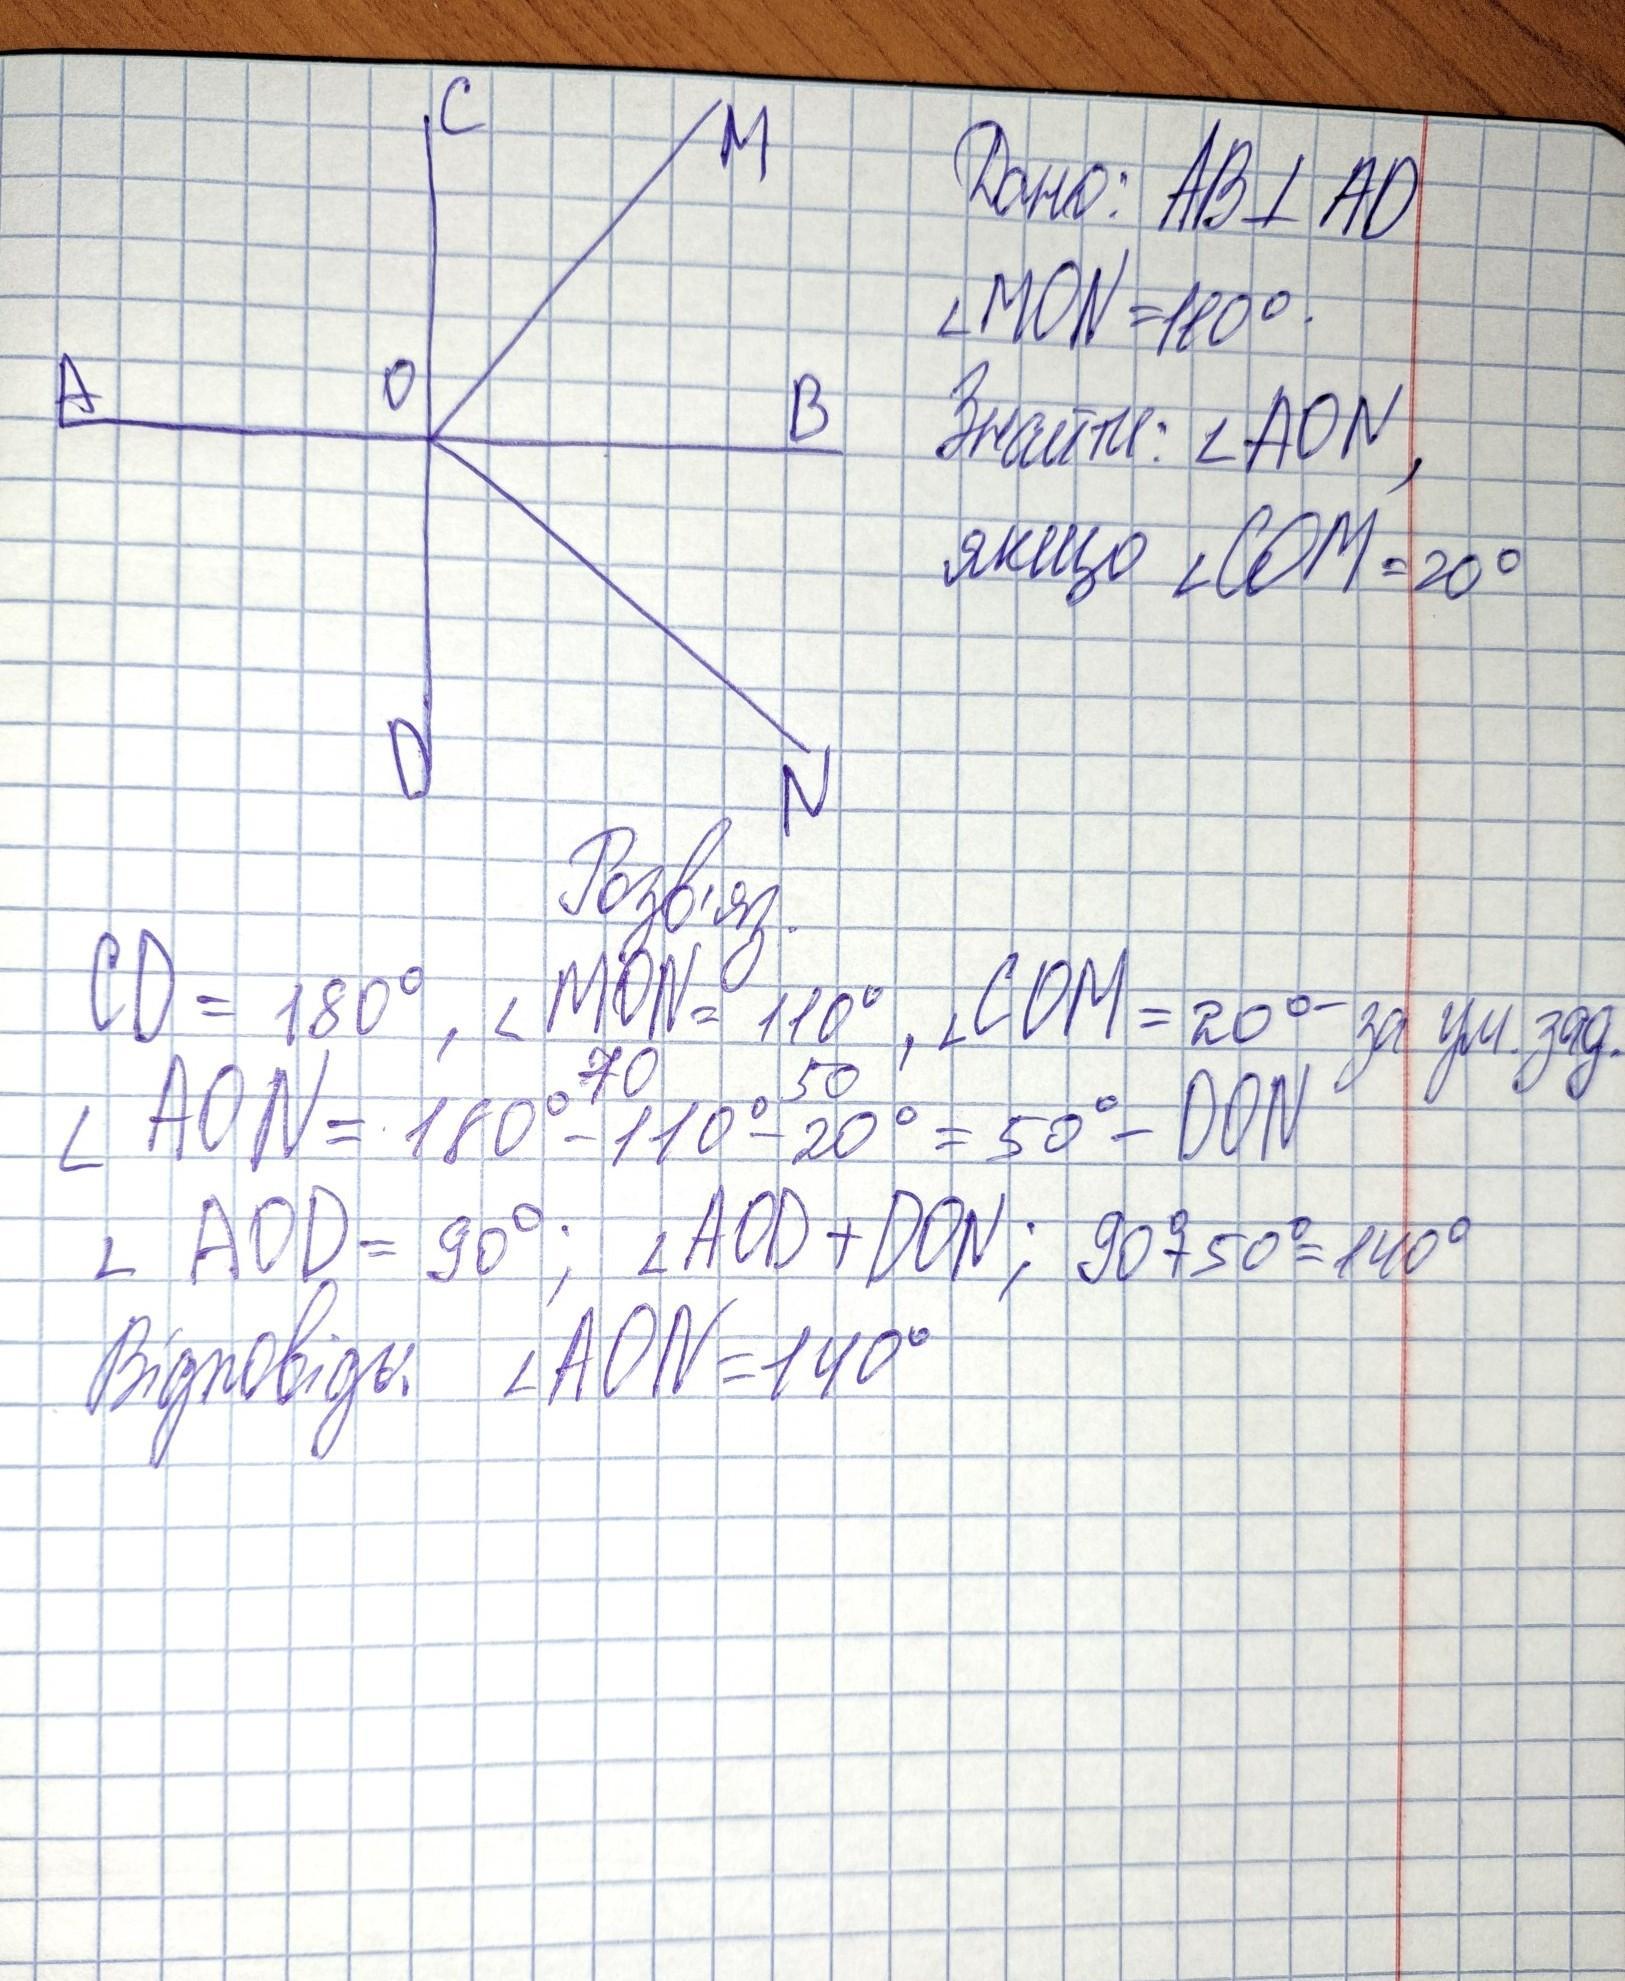 C
M
A
O
B
D
N
Дано: AB⊥AD
∠MON=110°.
Знайти: ∠AON,
якщо ∠COM=20°
Розв'яз.
CD= 180°, ∠MON= 110°, ∠COM=20°- за ум. зад.
70 50
∠ AON= 180°-110°-20°=50°- DON
∠ AOD= 90°; ∠AOD+DON; 90°+50°=140°
Відповідь. ∠AON=140°